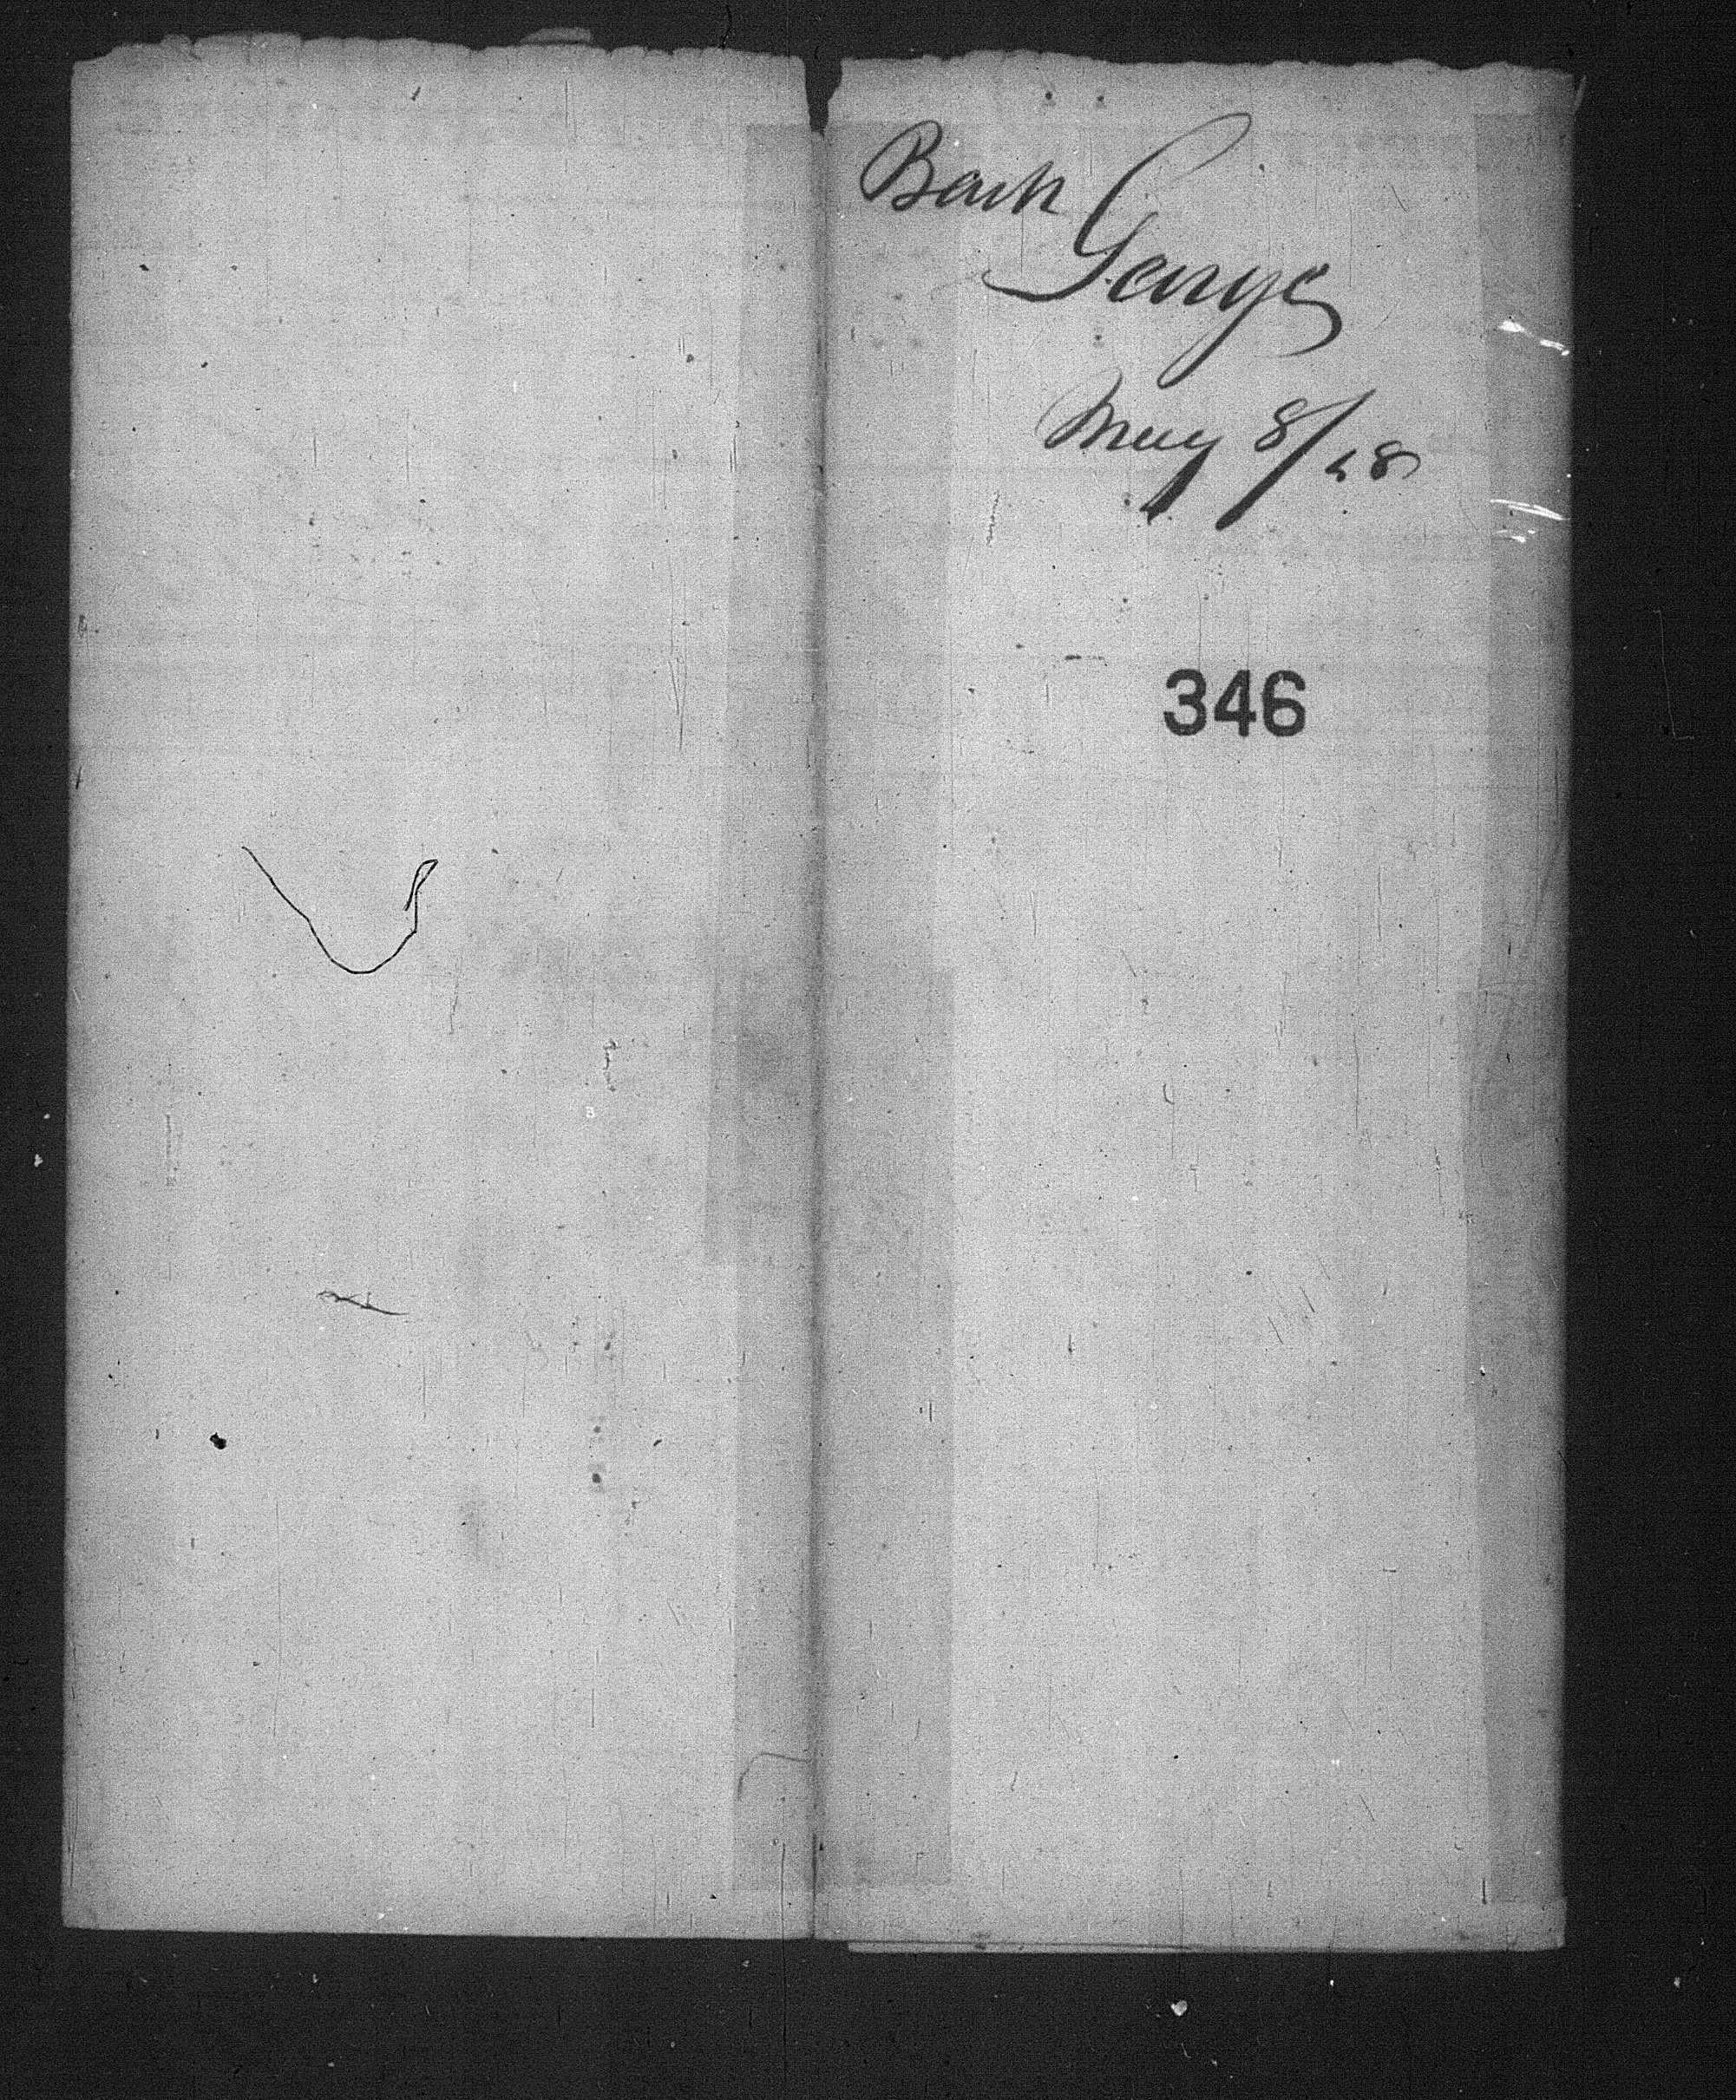 Bach
George
May 8/48
346